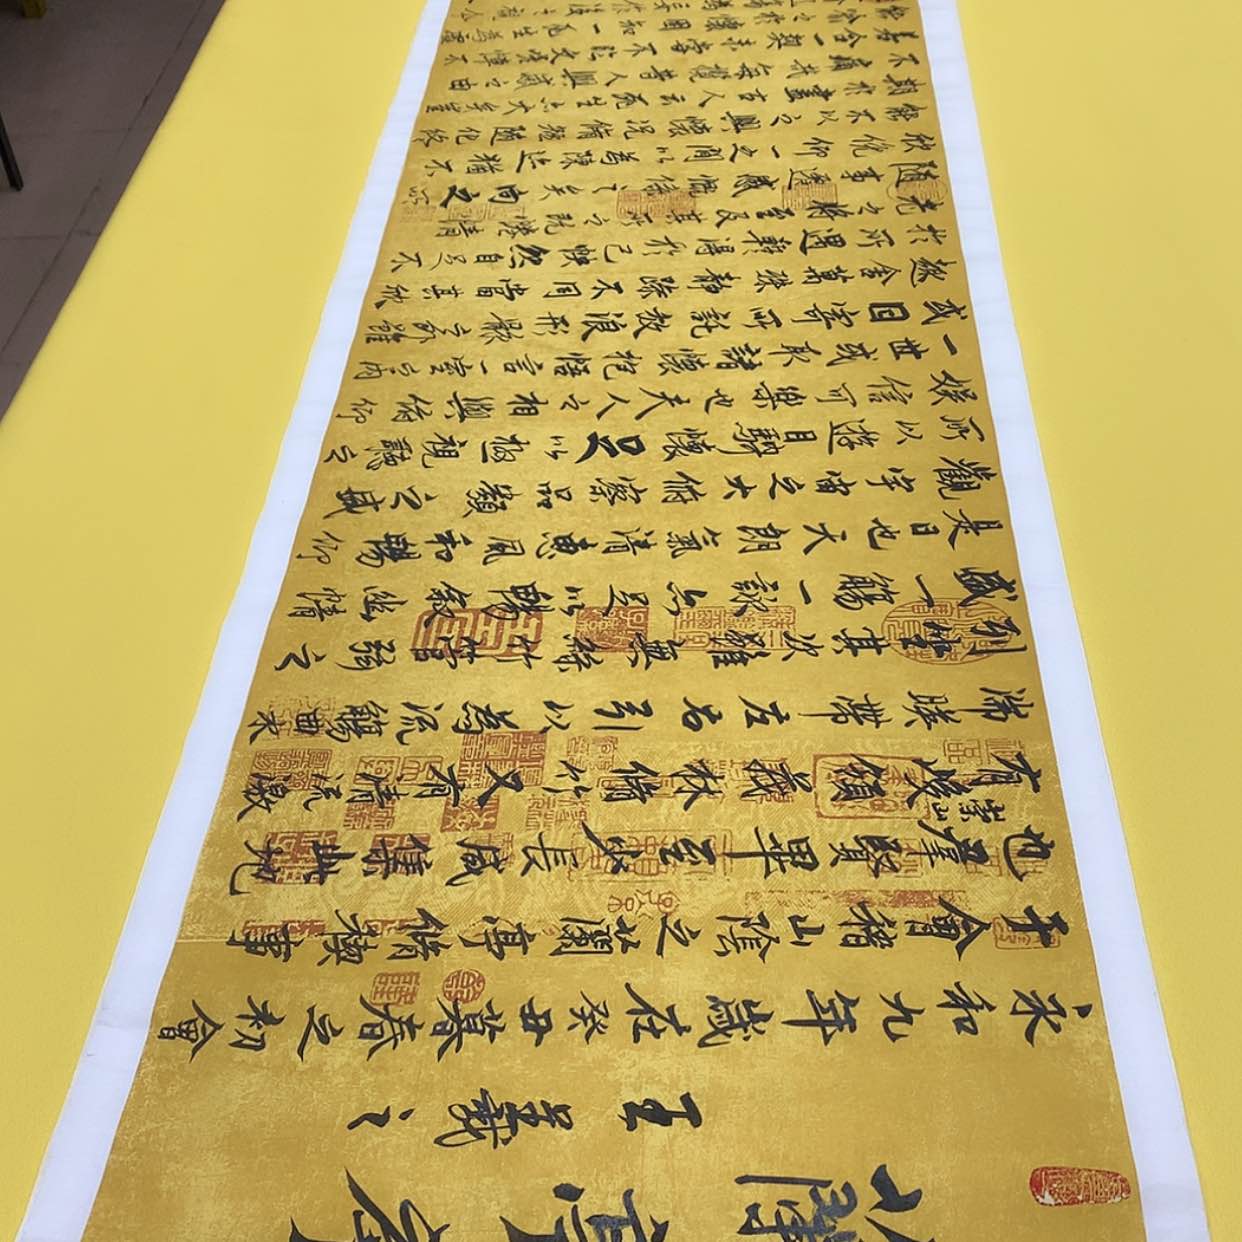 蘭亭序
王羲之
永和九年歲在癸丑暮春之初會
于會稽山陰之蘭亭脩禊事
也羣賢畢至少長咸集此地
有崇山峻領茂林脩竹又有清流激
湍暎帶左右引以為流觴曲水
列坐其次雖無絲竹管弦之
盛一觴一詠亦足以暢敘幽情
是日也天朗氣清惠風和暢仰
觀宇宙之大俯察品類之盛
所以遊目騁懷足以極視聽之
娛信可樂也夫人之相與俯仰
一世或取諸懷抱悟言一室之內
或因寄所託放浪形骸之外雖
趣舍萬殊靜躁不同當其欣
於所遇暫得於己怏然自足不
知老之將至及其所之既惓情
隨事遷感慨係之矣向之所
欣俛仰之間以為陳迹猶不
能不以之興懷況脩短隨化終
期於盡古人云死生亦大矣豈
不痛哉每攬昔人興感之由
若合一契未嘗不臨文嗟悼不
能喻之於懷固知一死生為虛